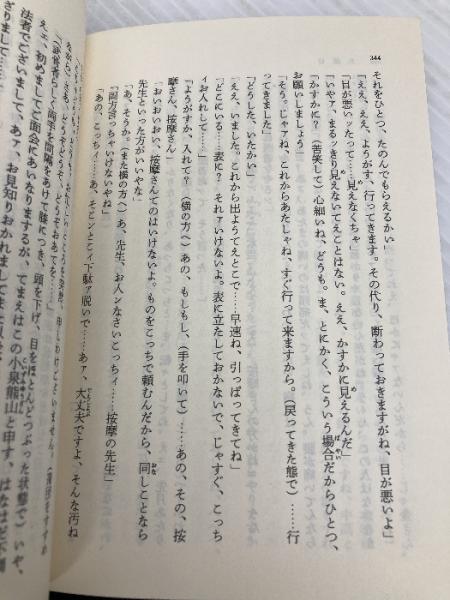 344
それをひとつ、たのんでもらえるかい」
「ええ、ええ、ようがす、行ってきます。その代り、断わっておきますがね、目が悪いよ」
「目が悪いッたって……見えなくちゃ」
「いやァ、まるッきり見えないてえことはない。ええ、かすかに見えるんだ」
「かすかに？（苦笑して）心細いね、どうも。ま、とにかく、こういう場合だからひとつ、
お願いしましょう」
「そう。じゃァね、これからあたしゃね、すぐ行って来ますから。（戻ってきた態で）……行
ってきました」
「どうした、いたかい」
「ええ、いました。これから出ようてえとこで……早速ね、引っぱってきてね」
「どこにいる？……表に？ それァいけないよ。表に立たしておかないで、じゃすぐ、こっち
ィお入れして……」
「ようがすか、入れて？（横の方へ）あの、もしもし、（手を叩いて）……あの、その、按
摩さん、按摩さん」
「おいおいおい、按摩さんてのはいけないよ。ものをこっちで頼むんだから、同しことなら
先生といった方がいいやな」
「あ、そうか。（また横の方へ）あ、先生、お入ンなさいこっちィ……按摩の先生」
「両方言っちゃいけないやね」
「あの、こっちィ……あ、そこンとこィ下駄ァ脱いで……あァ、大丈夫ですよ、そんな汚ね
え、初めましてご面会にあいなりまするが、てまえはこの小泉熊山と申す、はなはだ不
法者でございまして、あァ、お見知りおかれまして
ざりまして……」